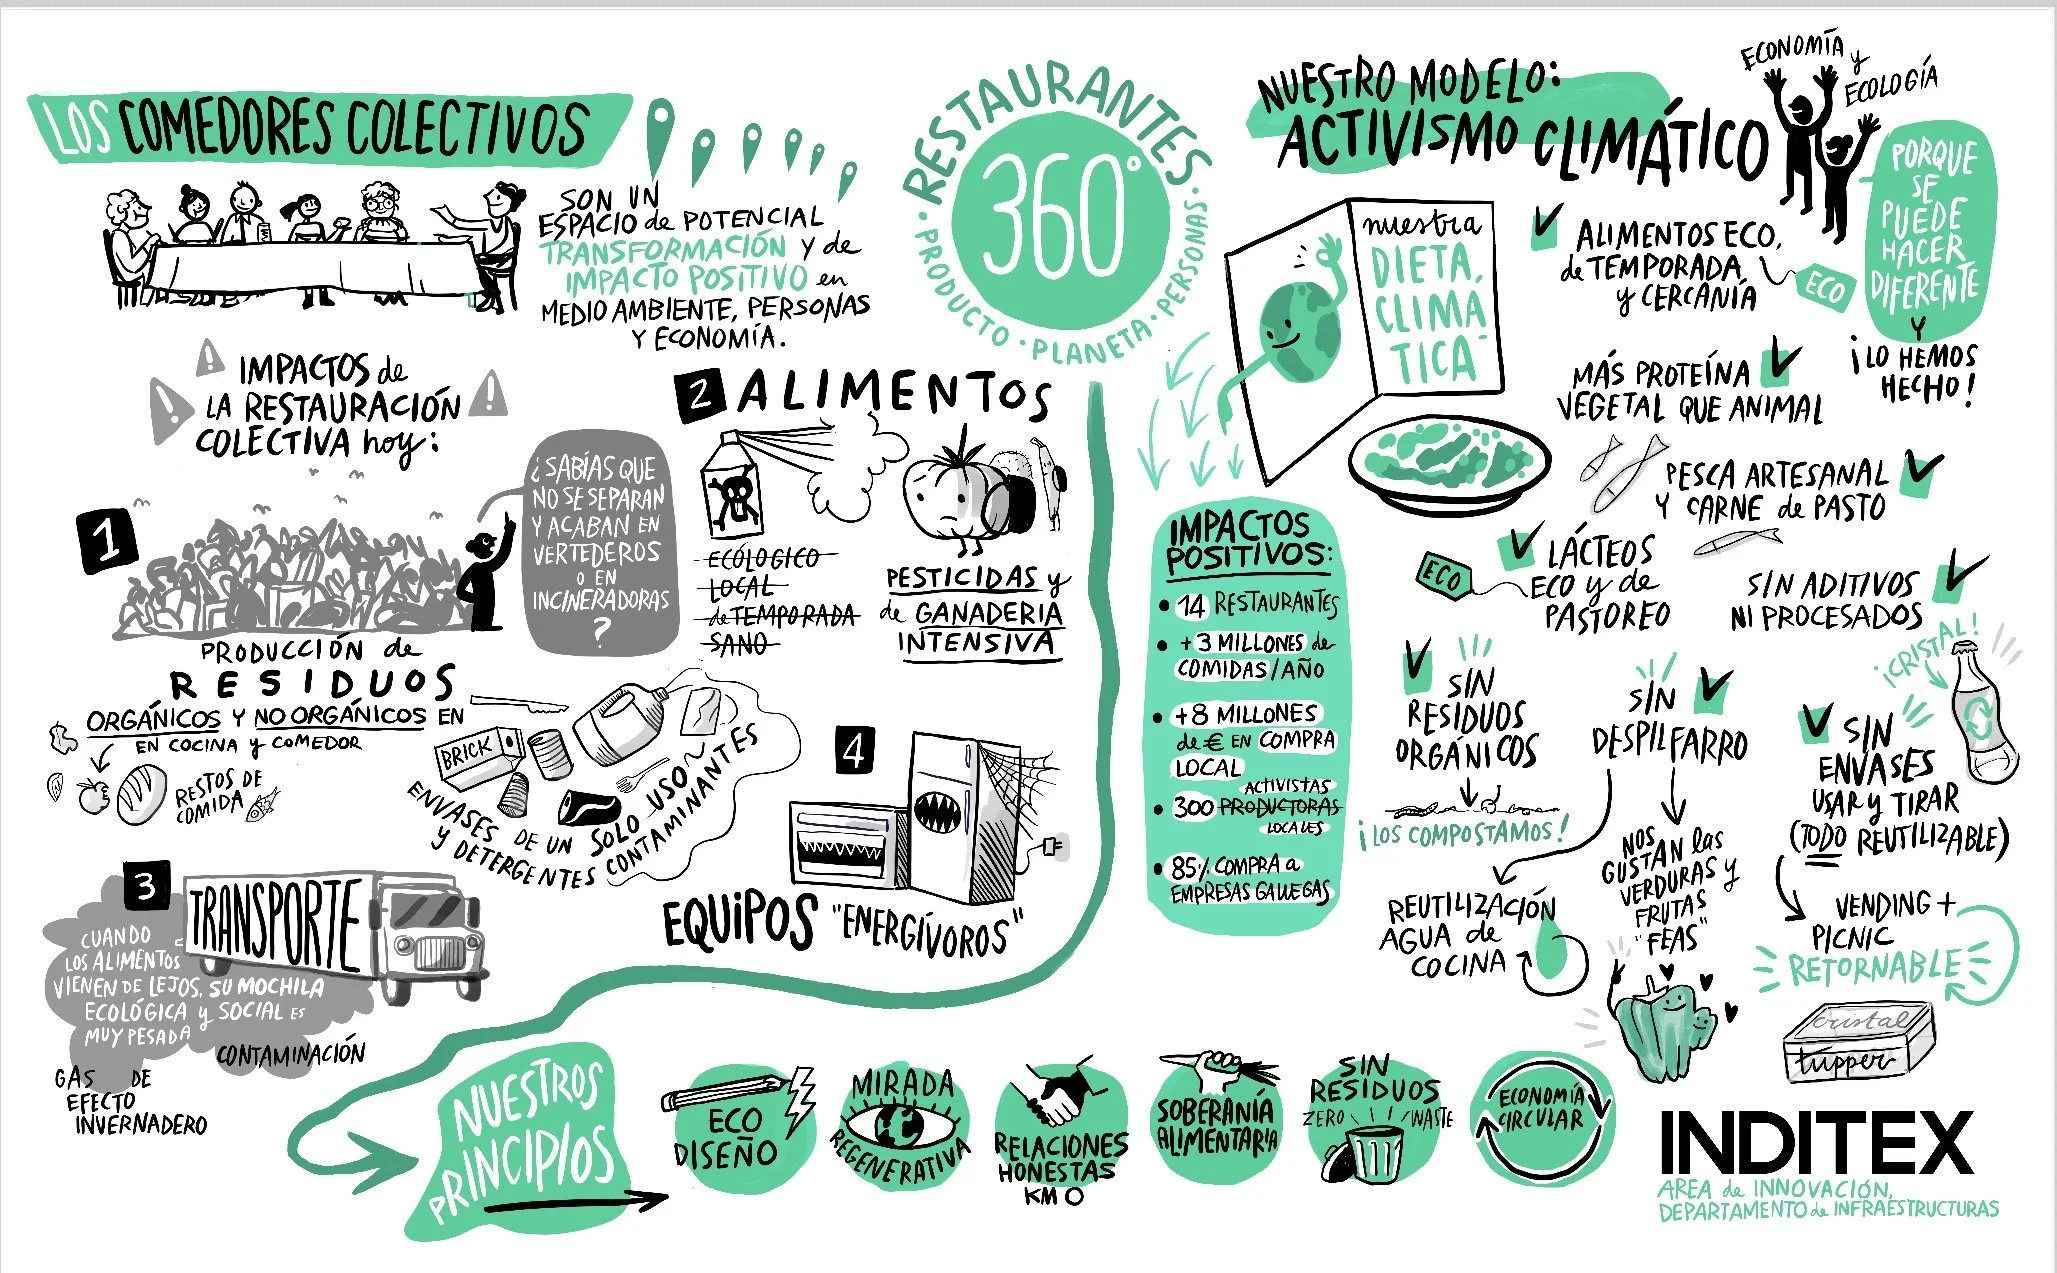 LOS COMEDORES COLECTIVOS
SON UN
ESPACIO de POTENCIAL
TRANSFORMACIÓN y de
IMPACTO POSITIVO en
MEDIO AMBIENTE, PERSONAS
Y ECONOMÍA.
IMPACTOS de
LA RESTAURACIÓN
COLECTIVA hoy:
1
¿SABÍAS QUE
NO SE SEPARAN
Y ACABAN EN
VERTEDEROS
O EN
INCINERADORAS
?
PRODUCCIÓN de
RESIDUOS
ORGÁNICOS Y NO ORGÁNICOS EN
EN COCINA y COMEDOR
RESTOS DE
COMIDA
BRICK
ENVASES DE UN SOLO USO
Y DETERGENTES CONTAMINANTES
2 ALIMENTOS
ECÓLOGICO
LOCAL
de TEMPORADA
SANO
PESTICIDAS y
de GANADERIA
INTENSIVA
3
TRANSPORTE
CUANDO
LOS ALIMENTOS
VIENEN DE LEJOS, SU MOCHILA
ECOLÓGICA y SOCIAL ES
MUY PESADA
CONTAMINACIÓN
GAS DE
EFECTO
INVERNADERO
4
EQUIPOS "ENERGÍVOROS"
RESTAURANTES
360°
PRODUCTO · PLANETA · PERSONAS
NUESTRO MODELO:
ACTIVISMO CLIMÁTICO
ECONOMÍA y
ECOLOGÍA
PORQUE
SE
PUEDE
HACER
DIFERENTE
Y
¡LO HEMOS
HECHO!
nuestra
DIETA,
CLIMÁ
TICA
ALIMENTOS ECO,
de TEMPORADA
y CERCANÍA
ECO
MÁS PROTEÍNA
VEGETAL QUE ANIMAL
PESCA ARTESANAL
Y CARNE de PASTO
ECO
LÁCTEOS
ECO y de
PASTOREO
SIN ADITIVOS
NI PROCESADOS
IMPACTOS
POSITIVOS:
• 14 RESTAURANTES
• +3 MILLONES de
COMIDAS/AÑO
• +8 MILLONES
de € EN COMPRA
LOCAL
ACTIVISTAS
• 300 PRODUCTORAS
LOCALES
• 85% COMPRA a
EMPRESAS GALLEGAS
SIN
RESIDUOS
ORGÁNICOS
¡LOS COMPOSTAMOS!
SIN
DESPILFARRO
REUTILIZACIÓN
AGUA de
COCINA
NOS
GUSTAN las
VERDURAS y
FRUTAS
"FEAS"
¡CRISTAL!
SIN
ENVASES
USAR y TIRAR
(TODO REUTILIZABLE)
VENDING +
PICNIC
RETORNABLE
cristal
túpper
NUESTROS
PRINCIPIOS
ECO
DISEÑO
MIRADA
REGENERATIVA
RELACIONES
HONESTAS
KM 0
SOBERANÍA
ALIMENTARIA
SIN
RESIDUOS
ZERO WASTE
ECONOMÍA
CIRCULAR
INDITEX
AREA de INNOVACIÓN,
DEPARTAMENTO de INFRAESTRUCTURAS